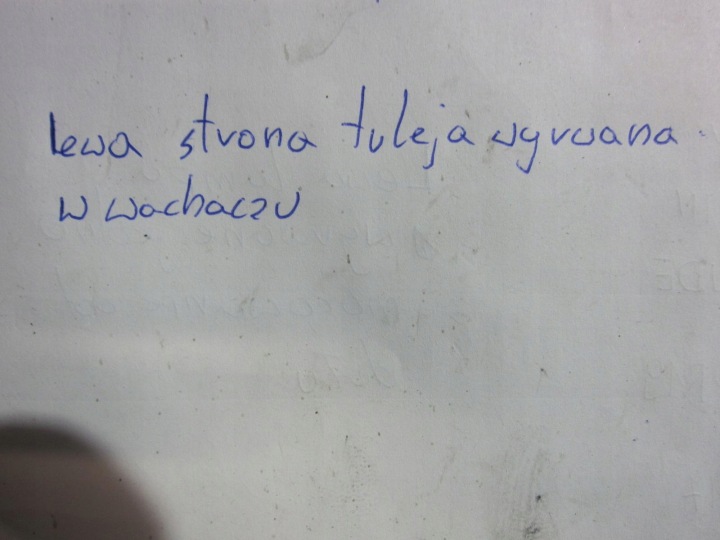 lewa strona tuleja wyrwana
w wachaczu